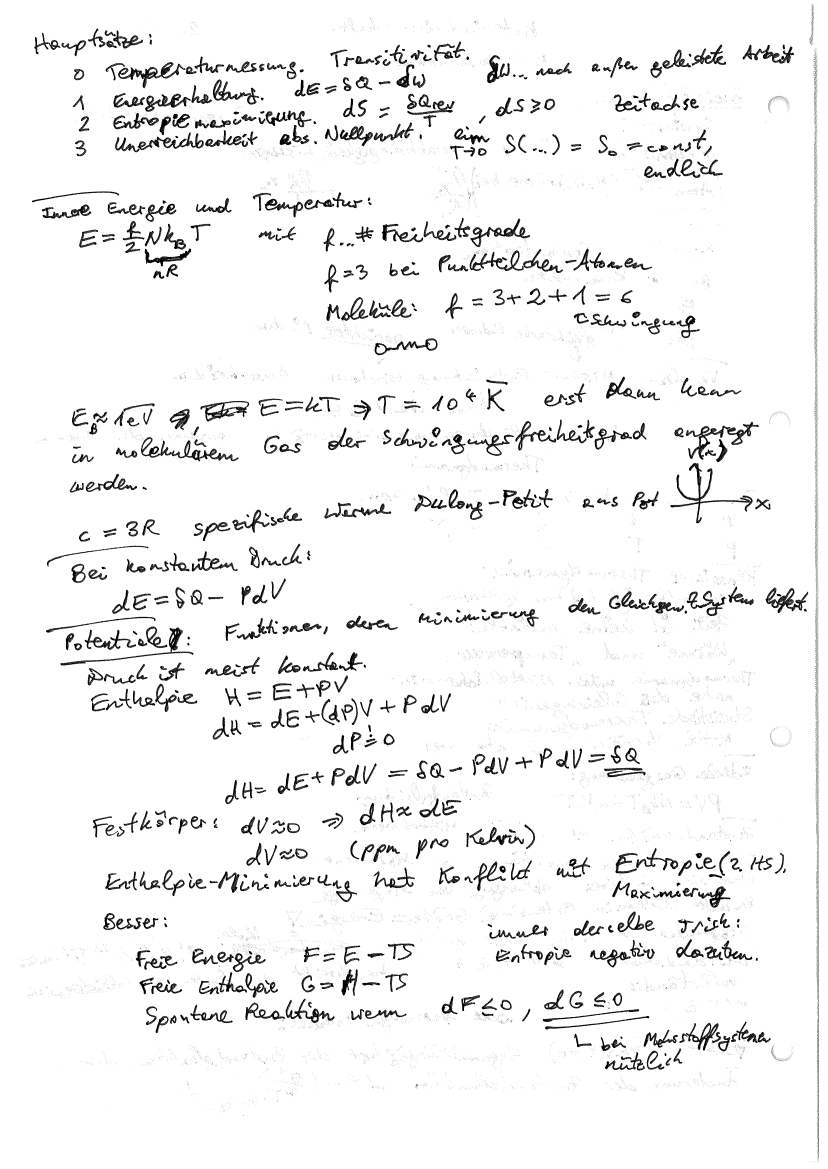 Hauptsätze:
0 Temperaturmessung. Transitivität.
1 Energieerhaltung. dE = δQ − δW δW... nach außen geleistete Arbeit
2 Entropiemaximierung. dS = δQrev/T , dS ≥ 0 Zeitachse
3 Unerreichbarkeit abs. Nullpunkt. lim T→0 S(...) = S₀ = const,
endlich
Innere Energie und Temperatur:
E = f/2 N k_B T mit f...# Freiheitsgrade
nR
f = 3 bei Punktteilchen-Atomen
Moleküle: f = 3 + 2 + 1 = 6
Schwingung
E_B ≈ 1eV , E = kT ⇒ T = 10⁴ K erst dann kann
in molekularem Gas der Schwingungsfreiheitsgrad angeregt
werden.
V(x)
c = 3R spezifische Wärme Dulong-Petit aus Pot x
Bei konstantem Druck:
dE = δQ − PdV
Potentiale: Funktionen, deren Minimierung den Gleichgew. d. Systems liefert.
Druck ist meist konstant.
Enthalpie H = E + PV
dH = dE + (dP)V + P dV
dP != 0
dH = dE + PdV = δQ − PdV + PdV = δQ
Festkörper: dV ≈ 0 ⇒ dH ≈ dE
dV ≈ 0 (ppm pro Kelvin)
Enthalpie-Minimierung hat Konflikt mit Entropie (2. HS).
Maximierung
Besser: immer derselbe Trick:
Freie Energie F = E − TS Entropie negativ dazutun.
Freie Enthalpie G = H − TS
Spontane Reaktion wenn dF ≤ 0 , dG ≤ 0
bei Mehrstoffsystemen
nützlich